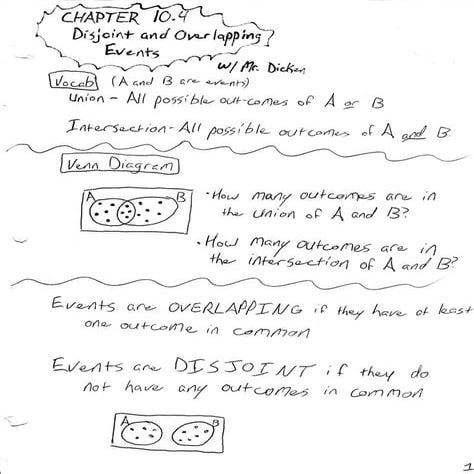 CHAPTER 10.4
Disjoint and Overlapping
Events
w/ Mr. Dicken
Vocab (A and B are events)
Union - All possible outcomes of A or B
Intersection - All possible outcomes of A and B
Venn Diagram
A B
• How many outcomes are in
the union of A and B?
• How many outcomes are in
the intersection of A and B?
Events are OVERLAPPING if they have at least
one outcome in common
Events are DISJOINT if they do
not have any outcomes in common
A B
1